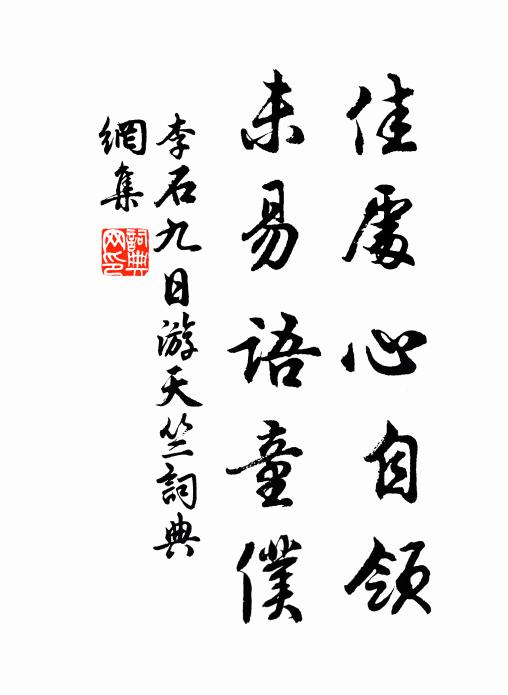 佳處心自領
未易語童僕
李石九日游天竺詞典
網集
詞典網印